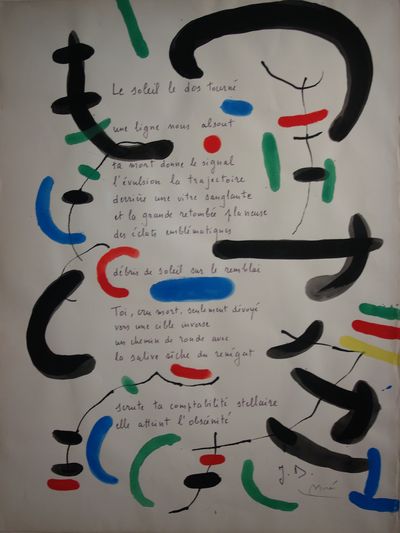 Le soleil le dos tourné
une ligne nous absout
ta mort donne le signal
l'évulsion la trajectoire
derrière une vitre sanglante
et la grande retombée planeuse
des éclats emblématiques
débris de soleil sur le remblai
Toi, cru mort, seulement dévoyé
vers une cible inverse
un chemin de ronde avec
la salive sèche du renégat
scrute ta comptabilité stellaire
elle atteint l'obscénité
J. D.
Miró